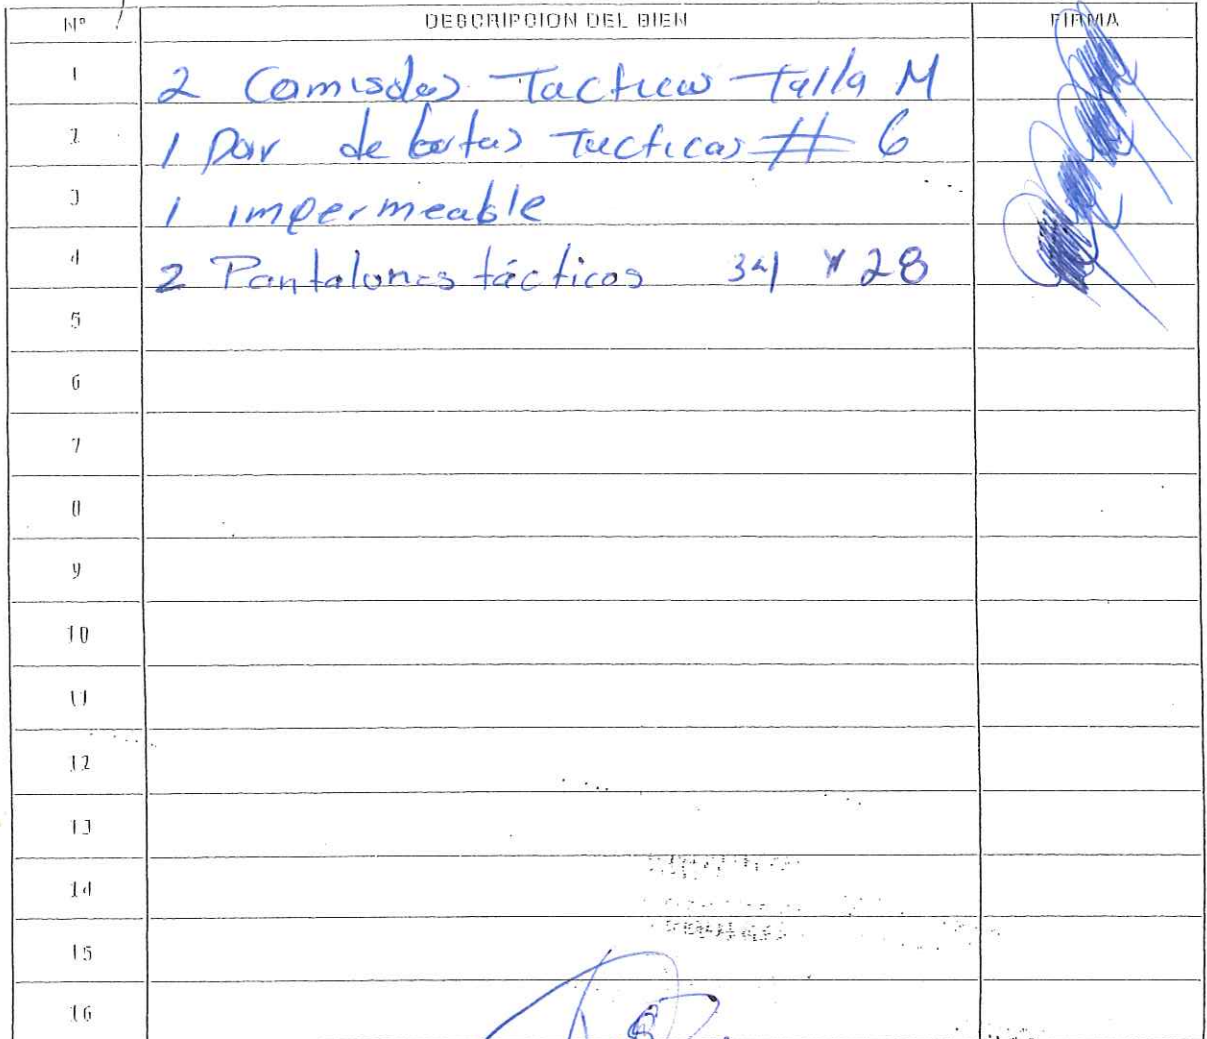 Nº DESCRIPCION DEL BIEN FIRMA
1 2 Camisolas Tacticas Talla M
2 1 par de botas Tacticas # 6
3 1 impermeable
4 2 Pantalones tácticos 34 x 28
5
6
7
8
9
10
11
12
13
14
15
16